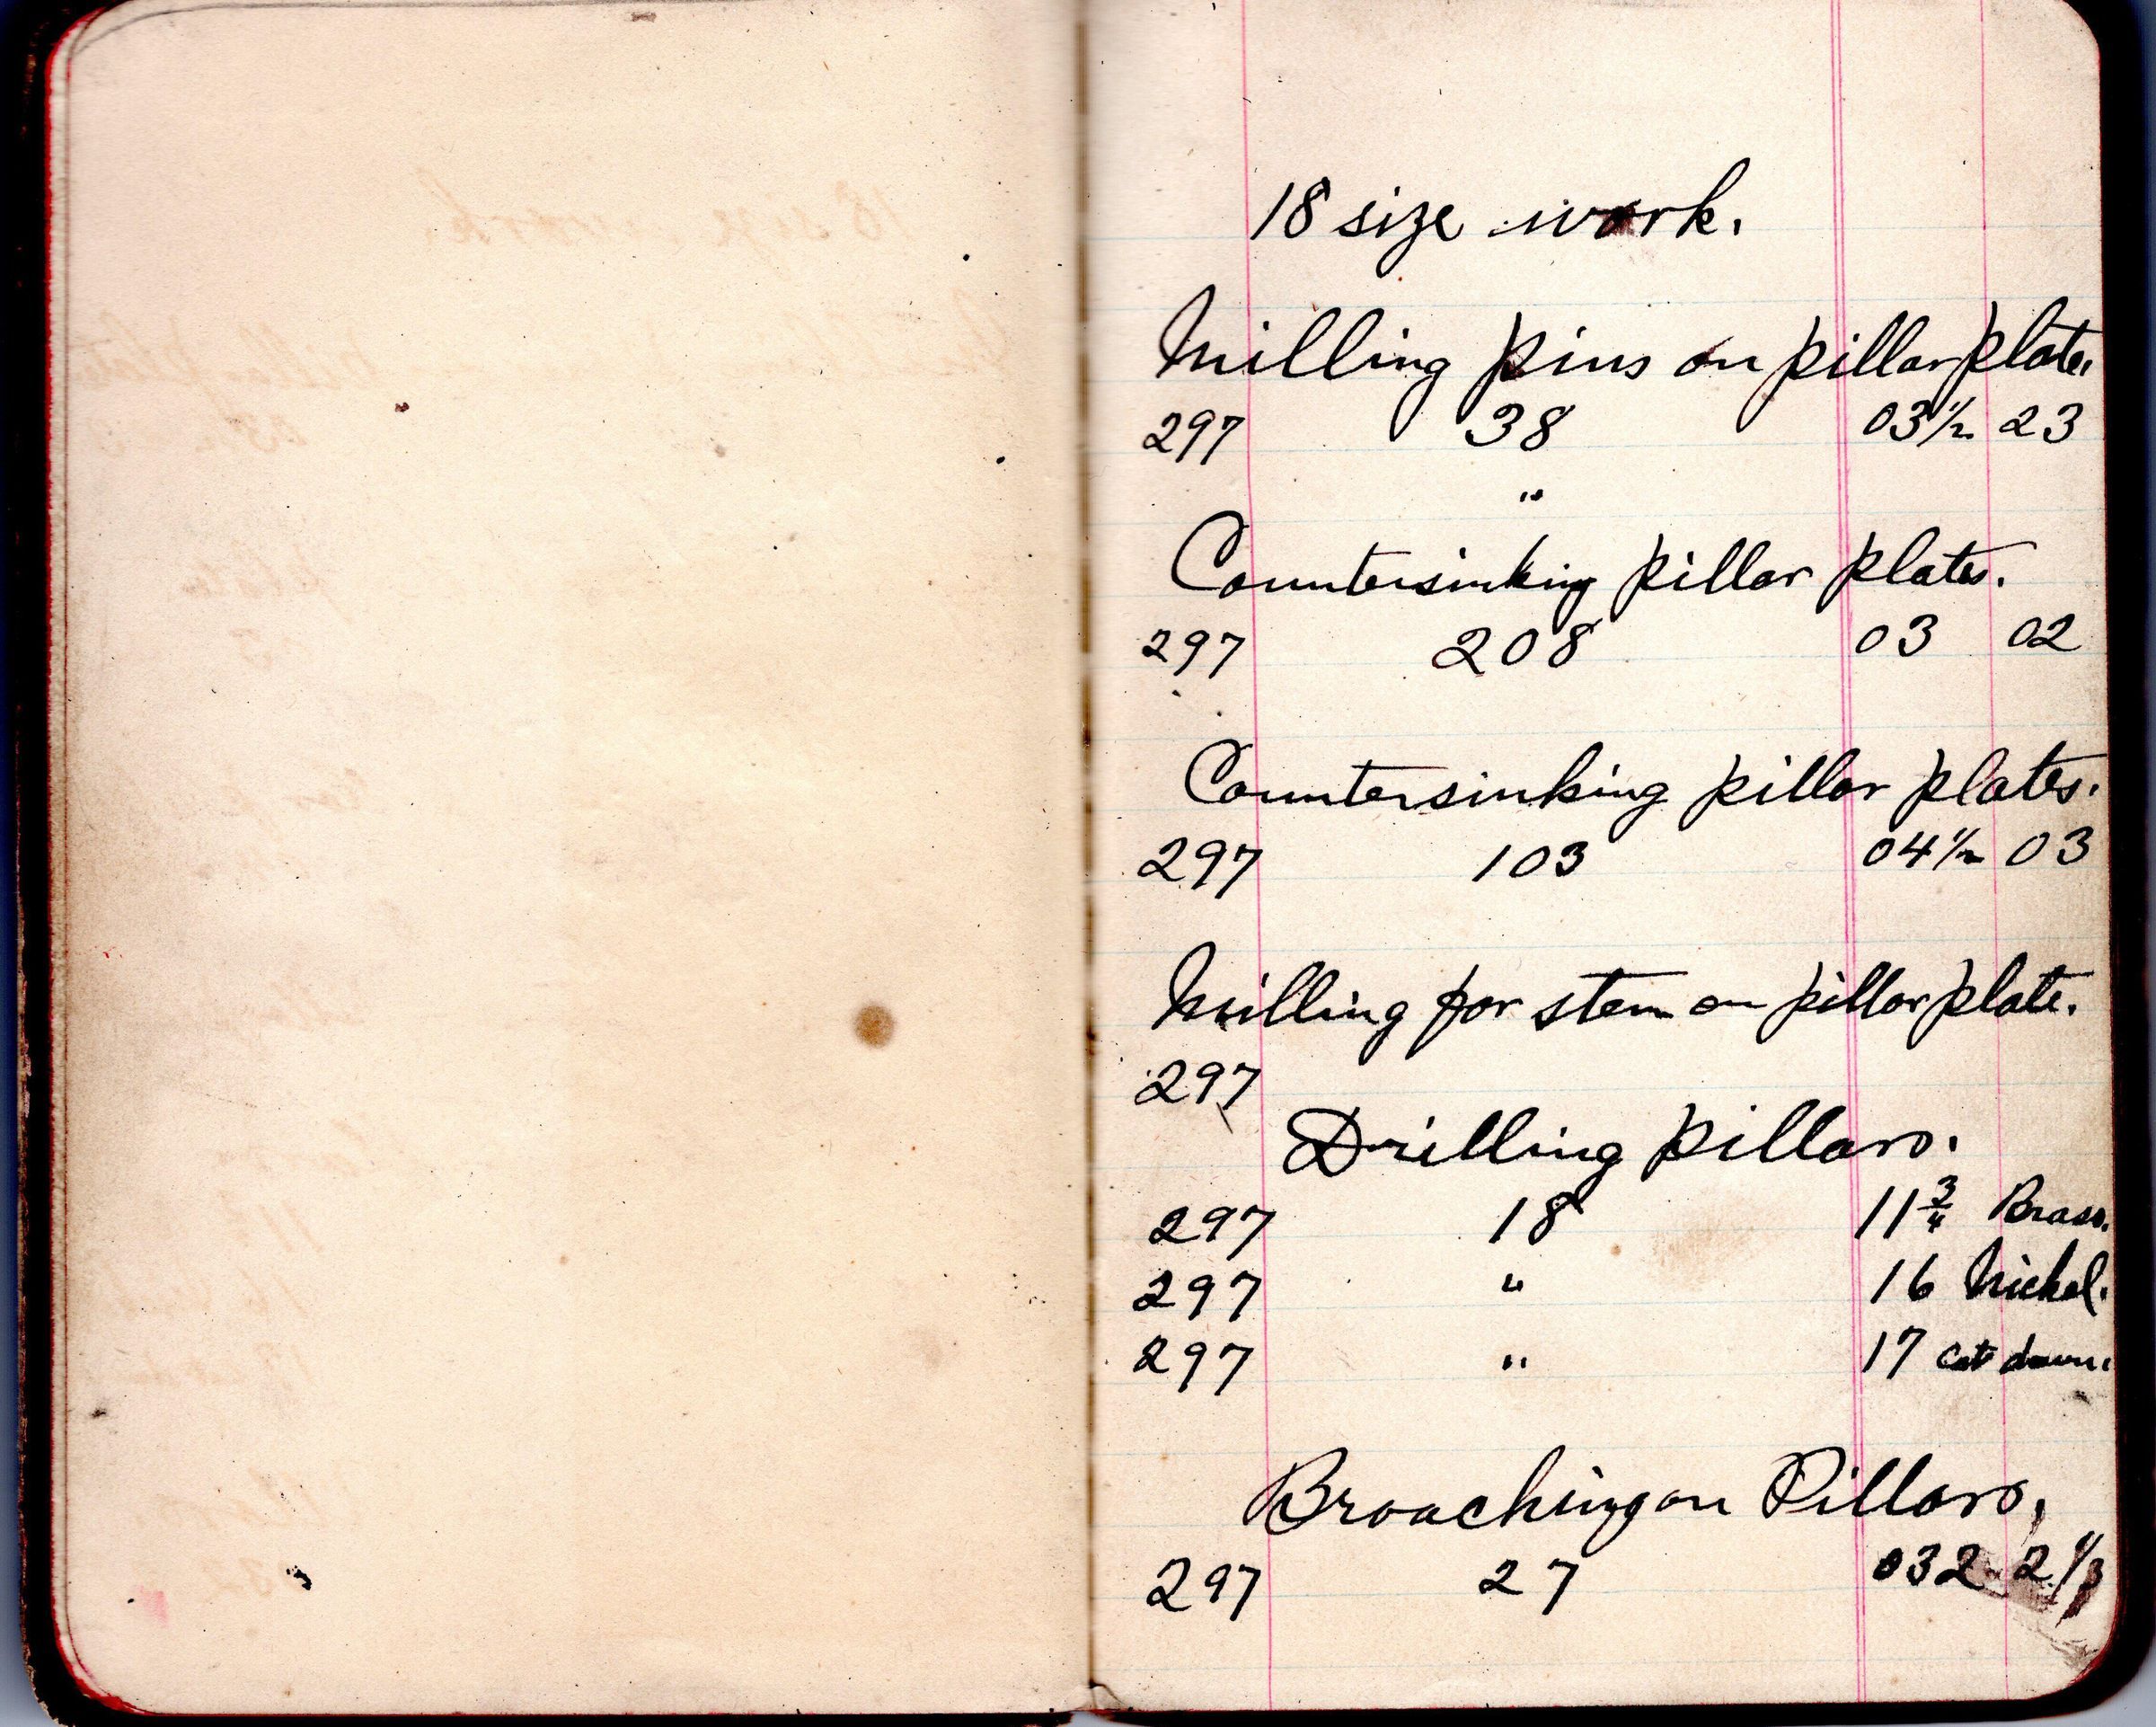 18 size work.
Milling pins on pillar plate.
297 38 03 1/2 23
"
Countersinking pillar plates.
297 208 03 02
Countersinking pillar plates.
297 103 04 1/2 03
Milling for stem on pillar plate.
297
Drilling pillars.
297 18 11 3/4 Brass.
297 " 16 Nickel.
297 " 17 cut down.
Broaching on Pillars.
297 27 032 2 1/3